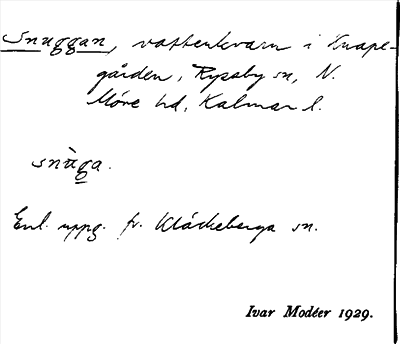 Snuggan, vattenkvarn i Knape-
gården, Ryssby sn, N.
Möre hd, Kalmar l.
snùga.
Enl. uppg. fr. Kläckeberga sn.
Ivar Modéer 1929.